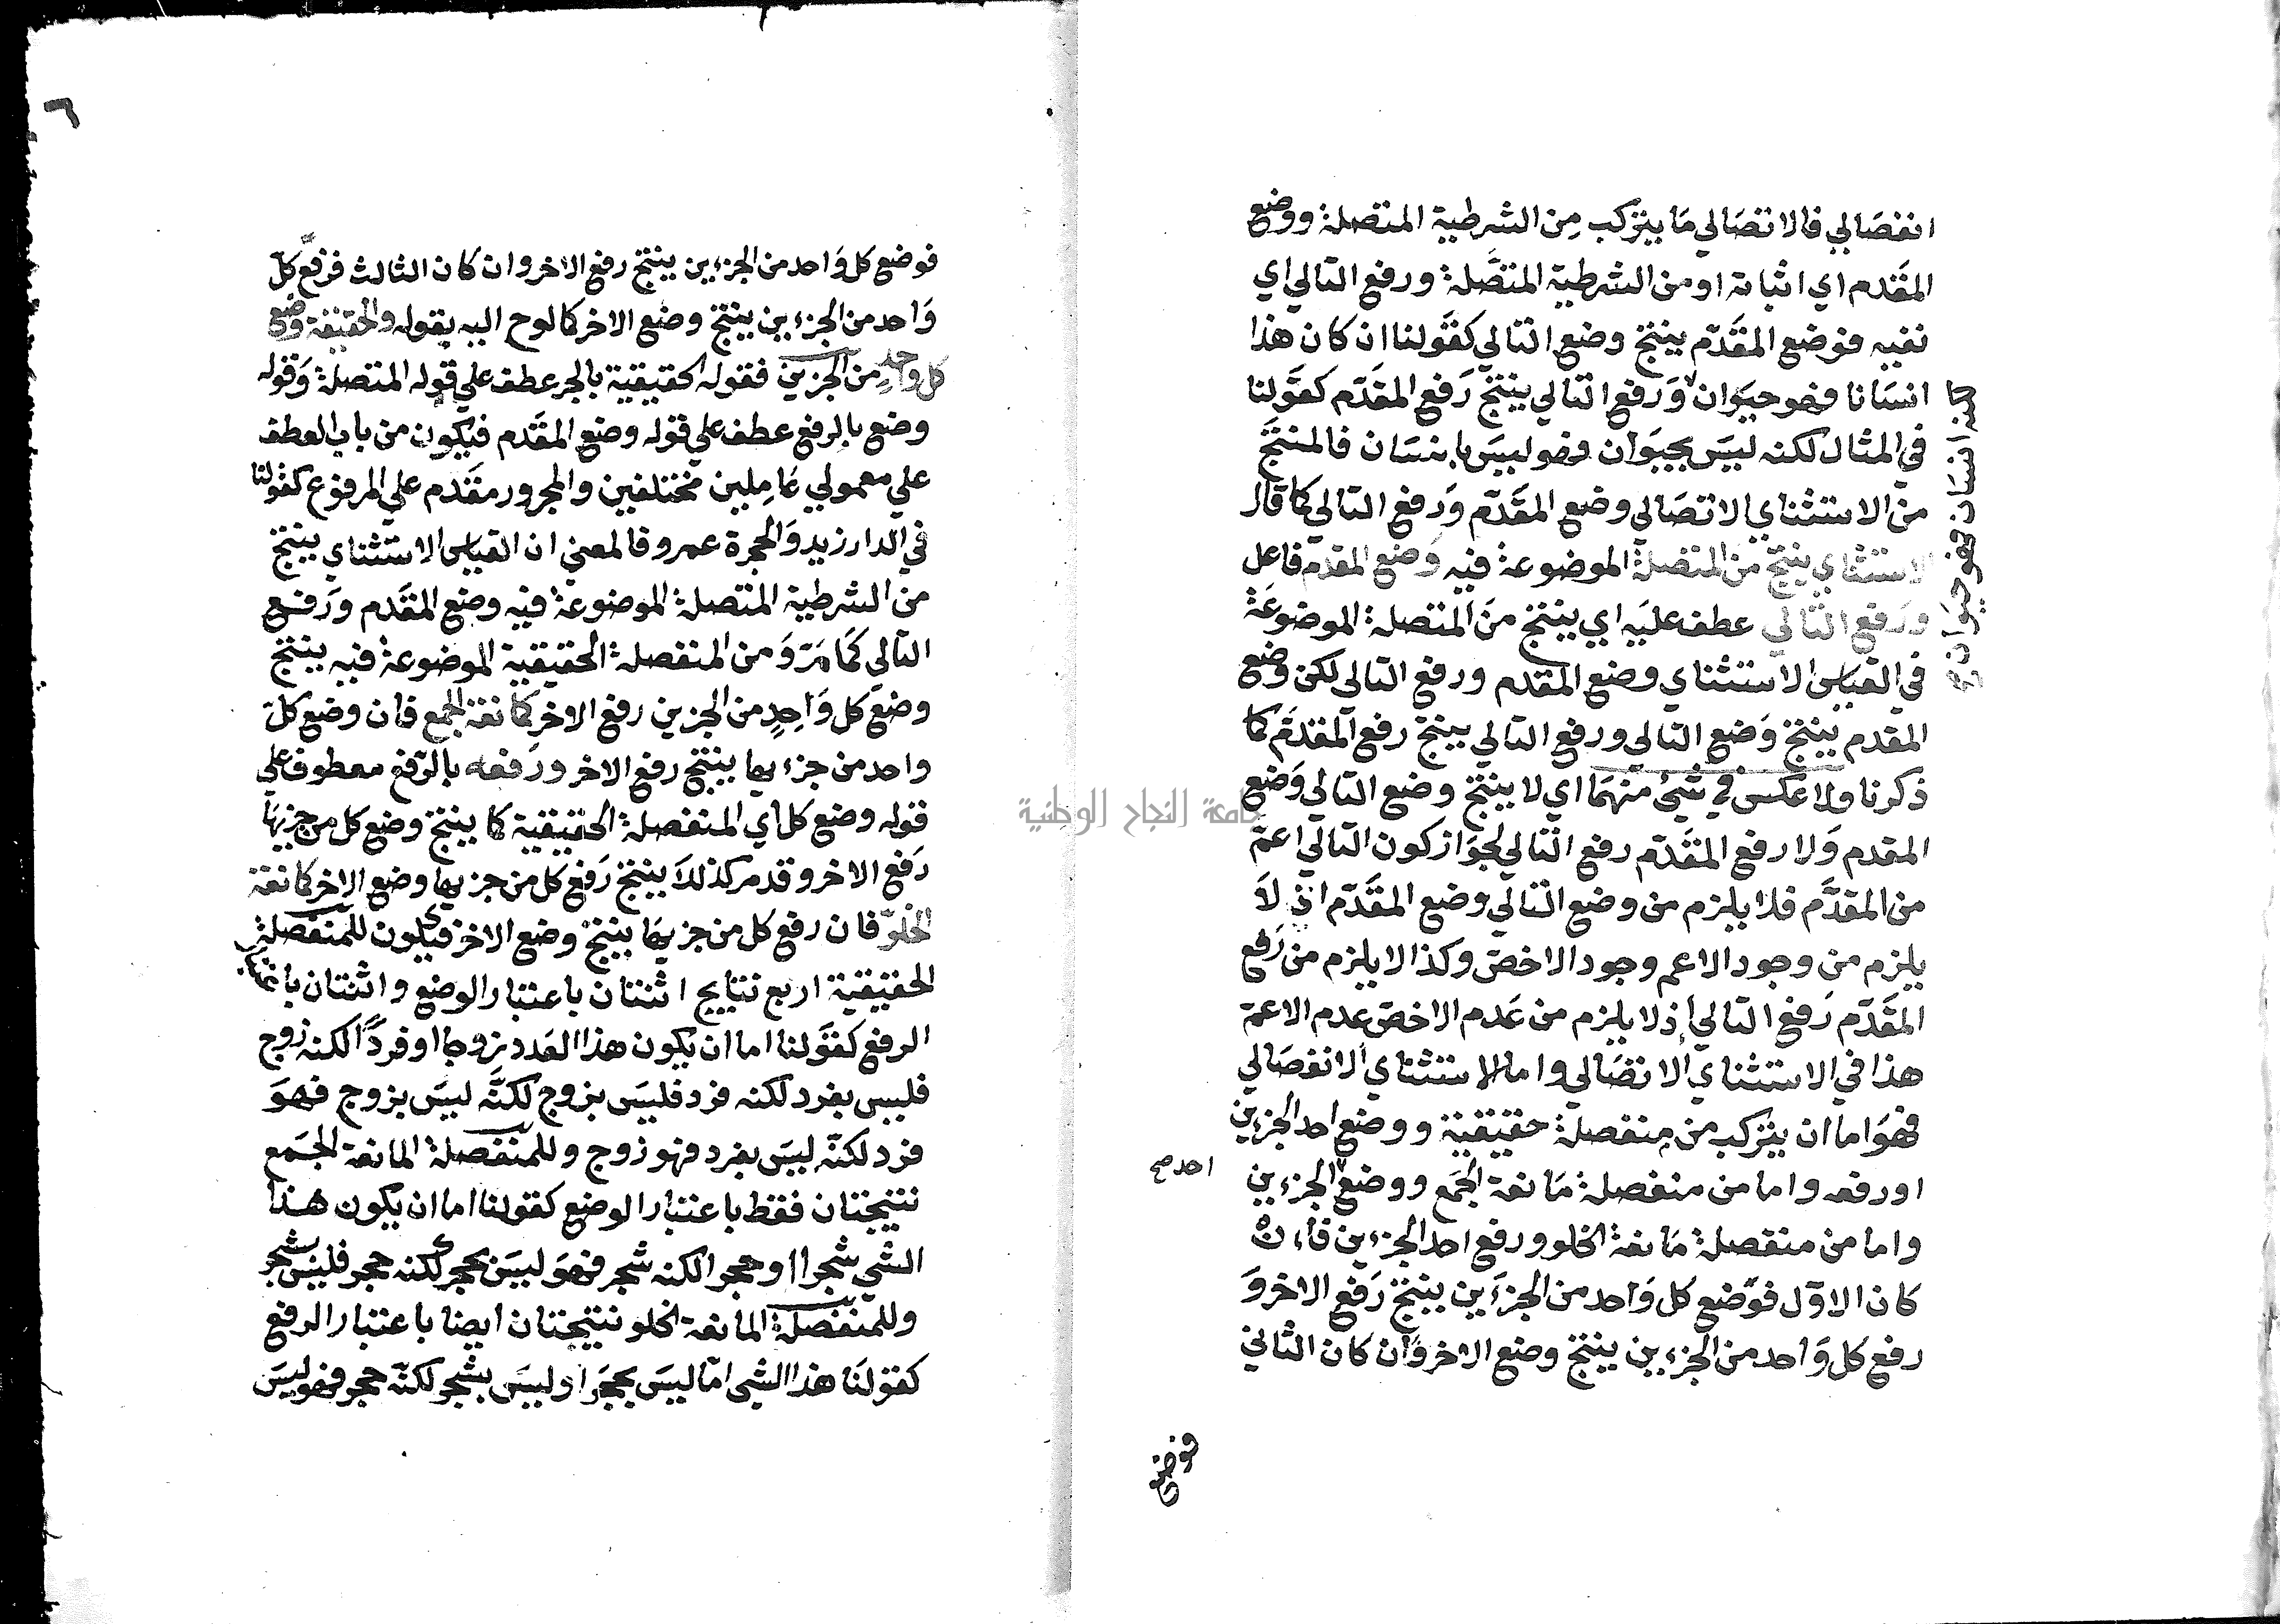 انفصالي فالاتصالي ما يتركب من الشرطية المتصلة ووضع
المقدم اي اثباته او من الشرطية المتصلة ورفع التالي اي
نفيه فوضع المقدم ينتج وضع التالي كقولنا ان كان هذا
انسانا فهو حيوان ورفع التالي ينتج رفع المقدم كقولنا
لكنه انسان فهو حيوان صح
في المثال لكنه ليس بحيوان فهو ليس بانسان فالمنتج
من الاستثناي الاتصالي وضع المقدم ورفع التالي كما قال
الاستثناي ينتج من المتصلة الموضوعة فيه وضع المقدم فاعل
ورفع التالي عطف عليه اي ينتج من المتصلة الموضوعة
في القياس الاستثناي وضع المقدم ورفع التالي لكن وضع
المقدم ينتج وضع التالي ورفع التالي ينتج رفع المقدم كما
ذكرنا ولا عكس في شئ منهما اي لا ينتج وضع التالي وضع
المقدم ولا رفع المقدم رفع التالي لجواز كون التالي اعم
من المقدم فلا يلزم من وضع التالي وضع المقدم اذ لا
يلزم من وجود الاعم وجود الاخص وكذا لا يلزم من رفع
المقدم رفع التالي اذ لا يلزم من عدم الاخص عدم الاعم
هذا في الاستثناي الاتصالي واما الاستثناي الانفصالي
فهو اما ان يتركب من منفصلة حقيقية ووضع احد الجزءين
او رفعه واما من منفصلة مانعة الجمع ووضع الجزءين
احد صح
واما من منفصلة مانعة الخلو ورفع احد الجزءين فان
كان الاول فوضع كل واحد من الجزءين ينتج رفع الاخر و
رفع كل واحد من الجزءين ينتج وضع الاخر وان كان الثاني
فوضع
٦
فوضع كل واحد من الجزءين ينتج رفع الاخر وان كان الثالث فرفع كل
واحد من الجزءين ينتج وضع الاخر كما لوح اليه بقوله والحقيقة وضع
كل واحد من الجزين فقوله الحقيقية بالجر عطف علي قوله المتصلة وقوله
وضع بالرفع عطف علي قوله وضع المقدم فيكون من باب العطف
علي معمولي عاملين مختلفين والمجرور مقدم علي المرفوع كقولنا
في الدار زيد والحجرة عمرو فالمعني ان القياس الاستثناي ينتج
من الشرطية المتصلة الموضوعة فيه وضع المقدم ورفع
التالي كما مر ومن المنفصلة الحقيقية الموضوعة فيه ينتج
وضع كل واحد من الجزين رفع الاخر كمانعة الجمع فان وضع كل
واحد من جزءيها ينتج رفع الاخر ورفعه بالرفع معطوف علي
قوله وضع كل اي المنفصلة الحقيقية كما ينتج وضع كل من جزيها
رفع الاخر وقد مر كذلك ينتج رفع كل من جزيها وضع الاخر كمانعة
الخلو فان رفع كل من جزيها ينتج وضع الاخر فيكون للمنفصلة
الحقيقية اربع نتايج اثنتان باعتبار الوضع واثنتان باعتبار
الرفع كقولنا اما ان يكون هذا العدد زوجا او فردا لكنه زوج
فليس بفرد لكنه فرد فليس بزوج لكنه ليس بزوج فهو
فرد لكنه ليس بفرد فهو زوج وللمنفصلة المانعة الجمع
نتيجتان فقط باعتبار الوضع كقولنا اما ان يكون هذا
الشي شجرا او حجرا لكنه شجر فهو ليس بحجر لكنه حجر فليس بشجر
وللمنفصلة المانعة الخلو نتيجتان ايضا باعتبار الرفع
كقولنا هذا الشي اما ليس بحجر او ليس بشجر لكنه حجر فهو ليس
جامعة النجاح الوطنية